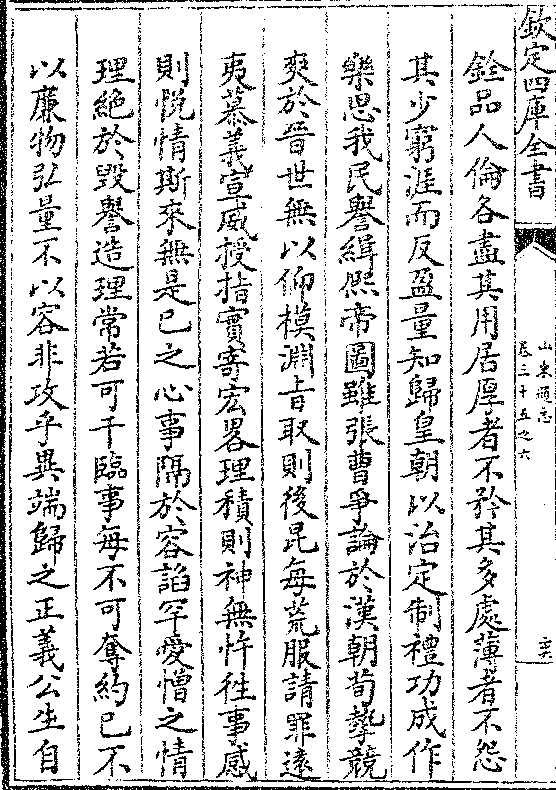 欽定四庫全書
山東通志
卷三十五之六
銓品人倫各盡其用居厚者不矜其多處薄者不怨
其少窮涯而反盈量知歸皇朝以治定制禮功成作
樂思我民譽緝熙帝圖雖張曹爭論於漢朝荀摯競
爽於晉世無以仰模淵旨取則後昆每荒服請罪遠
夷慕義宣威授指實寄宏畧理積則神無忤徃事感
則悅情斯來無是已之心事隔於容諂罕愛憎之情
理絕於毀譽造理常若可干臨事每不可奪約已不
以廉物弘量不以容非攻乎異端歸之正義公生自